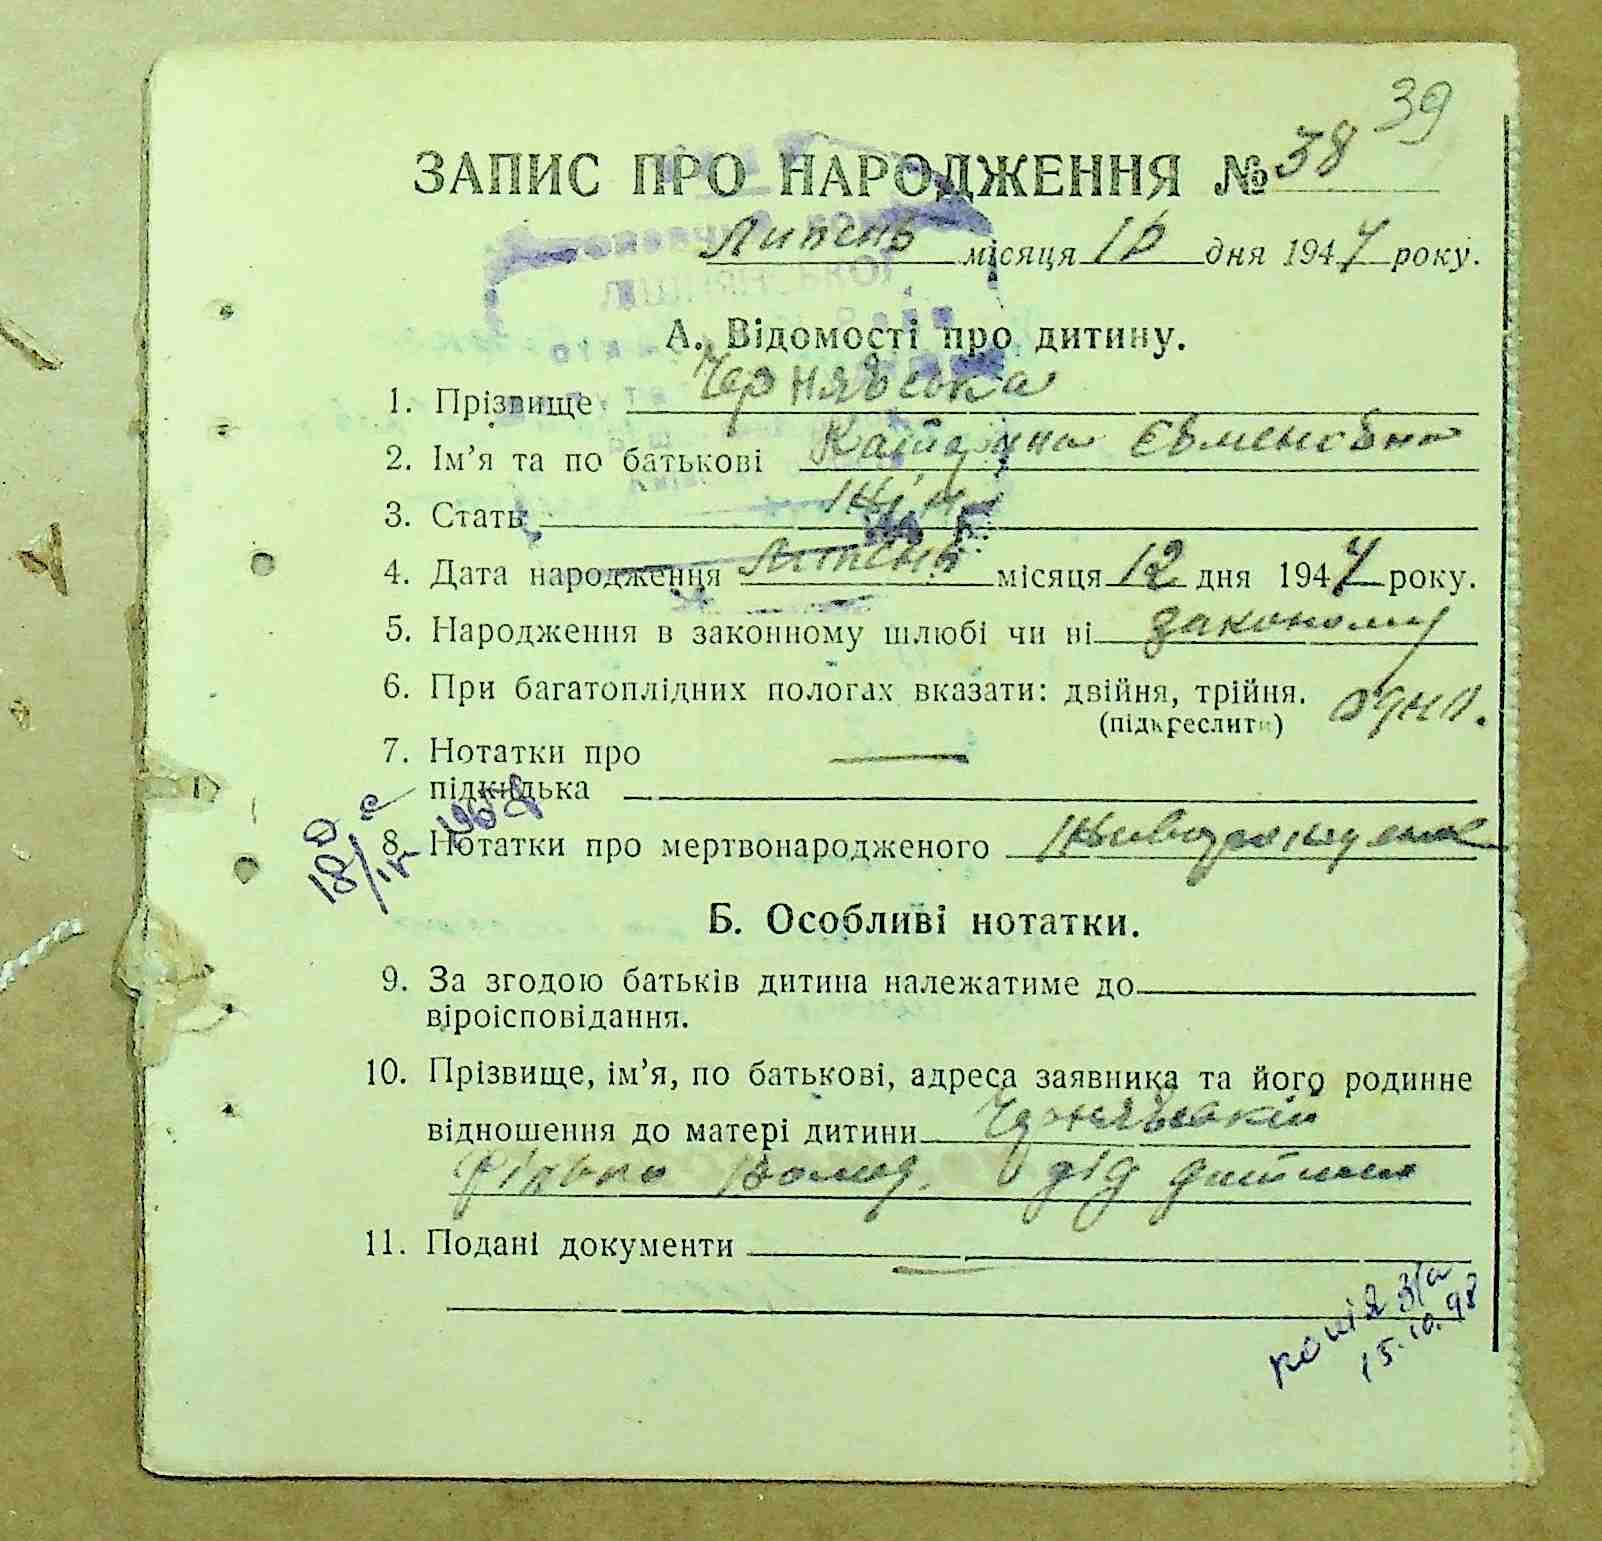 39
ЗАПИС ПРО НАРОДЖЕННЯ № 38
Липень місяця 1 дня 194 року.
А. Відомості про дитину.
1. Прізвище Чернявська
2. Ім’я та по батькові Катерина Євменівна
3. Стать жін.
4. Дата народження Липень місяця 12 дня 194 року.
5. Народження в законному шлюбі чи ні законому
6. При багатоплідних пологах вказати: двійня, трійня. одно.
(підкреслити)
7. Нотатки про
підкидька
8. Нотатки про мертвонародженого
Б. Особливі нотатки.
9. За згодою батьків дитина належатиме до
віроісповідання.
10. Прізвище, ім’я, по батькові, адреса заявника та його родинне
відношення до матері дитини Чернявський
дід дитини
11. Подані документи
копія з/а
15.10.98